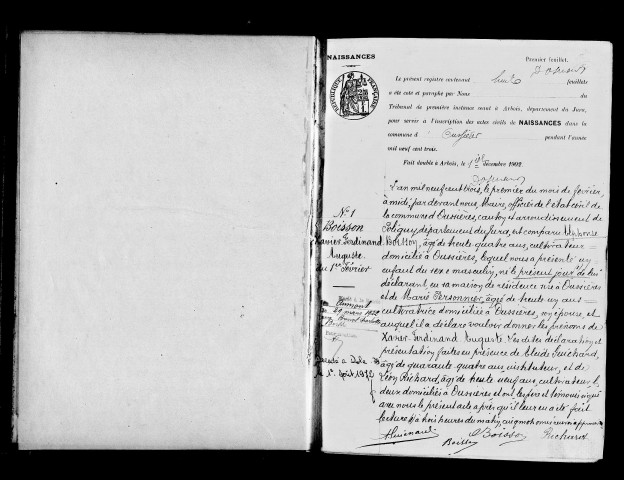 NAISSANCES
Premier feuillet.
Le présent registre contenant huit feuillets
a été coté et paraphé par Nous du
Tribunal de première instance séant à Arbois, département du Jura,
pour servir à l'inscription des actes civils de NAISSANCES dans la
commune d'Oussières pendant l'année
mil neuf cent trois.
Fait double à Arbois, le 1er décembre 1902.
RÉPUBLIQUE FRANÇAISE
N° 1
Boisson
Xavier Ferdinand
Auguste
du 1er Février
29 mars 1929
Décédé à Dole
le 1er Août 1972
L'an mil neuf cent trois, le premier du mois de février,
à midi, par devant nous, Maire, officier de l'état civil de
la commune d'Oussières, canton et arrondissement de
Poligny, département du Jura, est comparu Alphonse
Boisson, âgé de trente quatre ans, cultivateur
domicilié à Oussières, lequel nous a présenté un
enfant du sexe masculin, né le présent jour de lui
déclarant, en sa maison de résidence sise à Oussières
et de Marie Personnier, âgée de trente un ans
cultivatrice domiciliée à Oussières, son épouse, et
auquel il a déclaré vouloir donner les prénoms de
Xavier Ferdinand Auguste. Les dites déclaration et
présentation faites en présence de Claude Guichard,
âgé de quarante quatre ans, instituteur, et de
Léon Richard, âgé de trente neuf ans, cultivateur,
deux domiciliés à Oussières et ont les père et témoins signé
avec nous le présent acte après qu'il leur en a été fait
lecture à trois heures du matin
Boisson
Boisson
Richard